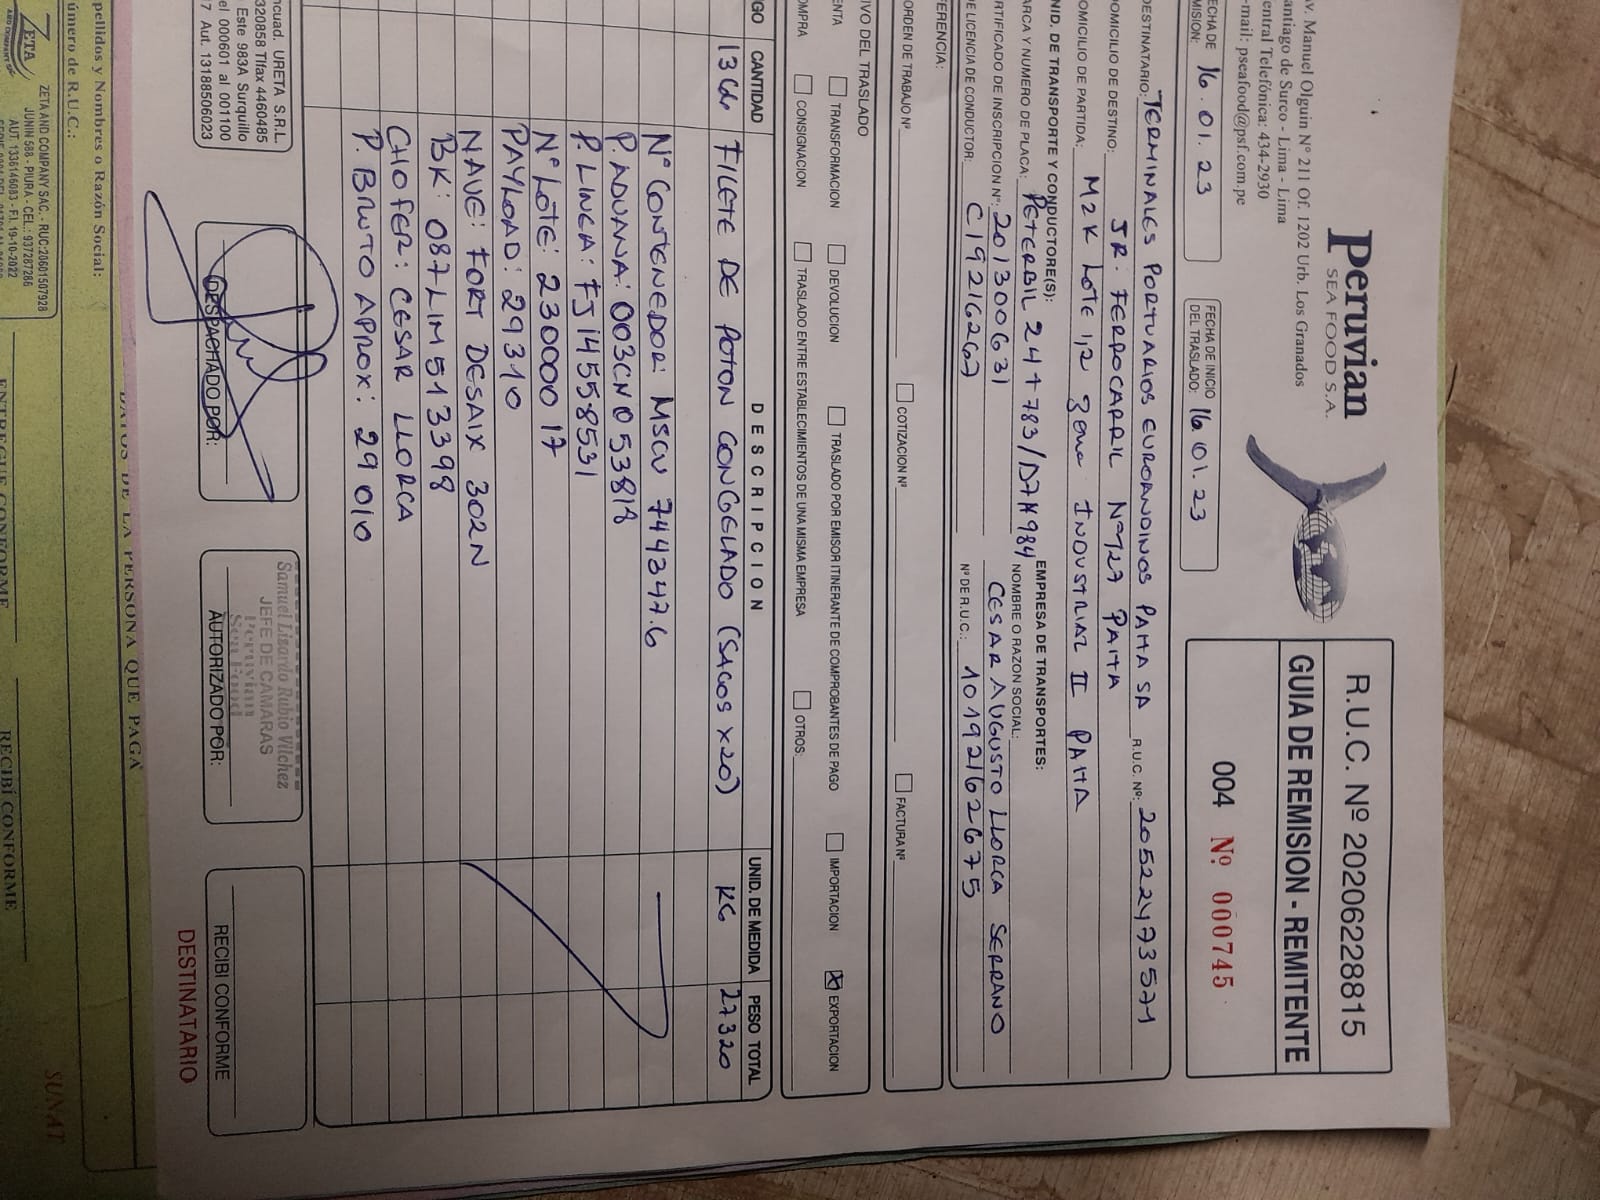 Peruvian
SEA FOOD S.A.
Av. Manuel Olguin Nº 211 Of. 1202 Urb. Los Granados
Santiago de Surco - Lima - Lima
Central Telefónica: 434-2930
e-mail: pseafood@psf.com.pe
R.U.C. Nº 20206228815
GUIA DE REMISION - REMITENTE
004 Nº 000745
FECHA DE EMISION: 16.01.23
FECHA DE INICIO DEL TRASLADO: 16.01.23
DESTINATARIO: TERMINALES PORTUARIOS EUROANDINOS PAITA SA R.U.C. Nº: 20522473571
DOMICILIO DE DESTINO: JR: FERROCARRIL Nº 127 PAITA
DOMICILIO DE PARTIDA: MZ K Lote 1,2 Zona INDUSTRIAL II PAITA
UNID. DE TRANSPORTE Y CONDUCTORE(S): EMPRESA DE TRANSPORTES:
MARCA Y NUMERO DE PLACA: PETERBIL Z4T783/D7N984 NOMBRE O RAZON SOCIAL:
CERTIFICADO DE INSCRIPCION Nº: 201300631 CESAR AUGUSTO LLORCA SERRANO
DE LICENCIA DE CONDUCTOR: C19216267 Nº DE R.U.C.: 10192162675
REFERENCIA:
ORDEN DE TRABAJO Nº COTIZACION Nº FACTURA Nº
MOTIVO DEL TRASLADO
VENTA TRANSFORMACION DEVOLUCION TRASLADO POR EMISOR ITINERANTE DE COMPROBANTES DE PAGO IMPORTACION X EXPORTACION
COMPRA CONSIGNACION TRASLADO ENTRE ESTABLECIMIENTOS DE UNA MISMA EMPRESA OTROS:
CANTIDAD DESCRIPCION UNID. DE MEDIDA PESO TOTAL
FILETE DE POTON CONGGELADO (SACOS x20) KG 27320
Nº CONTENEDOR: MSCU 744347.6
P. ADUANA: 003CN053818
P. LINEA: FJ14558531
Nº LOTE: 23000017
PAYLOAD: 29310
NAVE: FORT DESAIX 302N
BK: 087LIM513398
CHOFER: CESAR LLORCA
P. BRUTO APROX: 29010
URETA S.R.L.
320858 Tlfax 4460485
Este 983A Surquillo
el 000601 al 001100
7 Aut. 13188506023
DESPACHADO POR:
Samuel Lisardo Rubio Vilchez
JEFE DE CAMARAS
Peruvian
Sea Food
AUTORIZADO POR:
RECIBI CONFORME
DESTINATARIO
DATOS DE LA PERSONA QUE PAGA
Apellidos y Nombres o Razón Social:
Número de R.U.C.:
SUNAT
ZETA
ZETA AND COMPANY SAC. - RUC:20601507928
JUNIN 588 - PIURA - CEL.: 937287286
AUT. 1336146083 - F.I. 19-10-2022
ENTREGUE CONFORME
RECIBÍ CONFORME